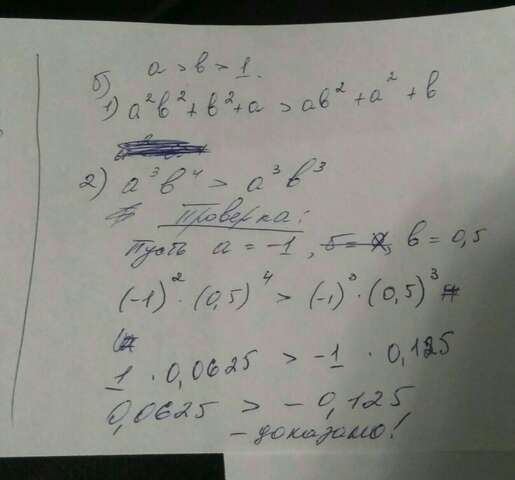 б) a > b > 1.
1) a²b² + b² + a > ab² + a² + b
2) a³b⁴ > a³b³
Проверка:
Пусть a = -1, b = 0,5
(-1)² · (0,5)⁴ > (-1)³ · (0,5)³
1 · 0,0625 > -1 · 0,125
0,0625 > - 0,125
- доказано!